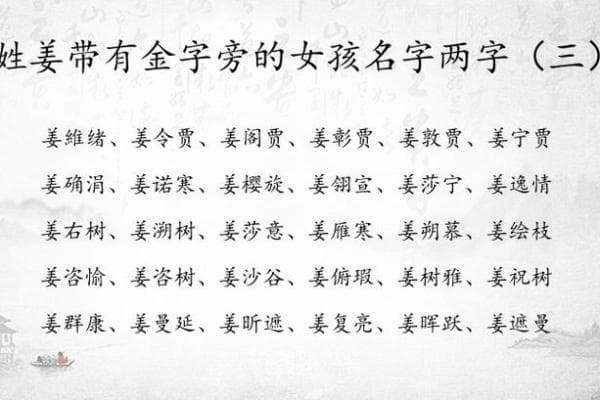 姓姜带有金字旁的女孩名字两字（三）
姜維绪、姜令贾、姜阁贾、姜彰贾、姜敦贾、姜宁贾
姜确涓、姜诺寒、姜樱旋、姜翎宣、姜莎宁、姜逸情
姜右树、姜溯树、姜莎意、姜雁寒、姜朔慕、姜绘枝
姜咨愉、姜咨树、姜沙谷、姜俯瑕、姜树雅、姜祝树
姜群康、姜曼延、姜昕遮、姜复亮、姜晖跃、姜遮曼